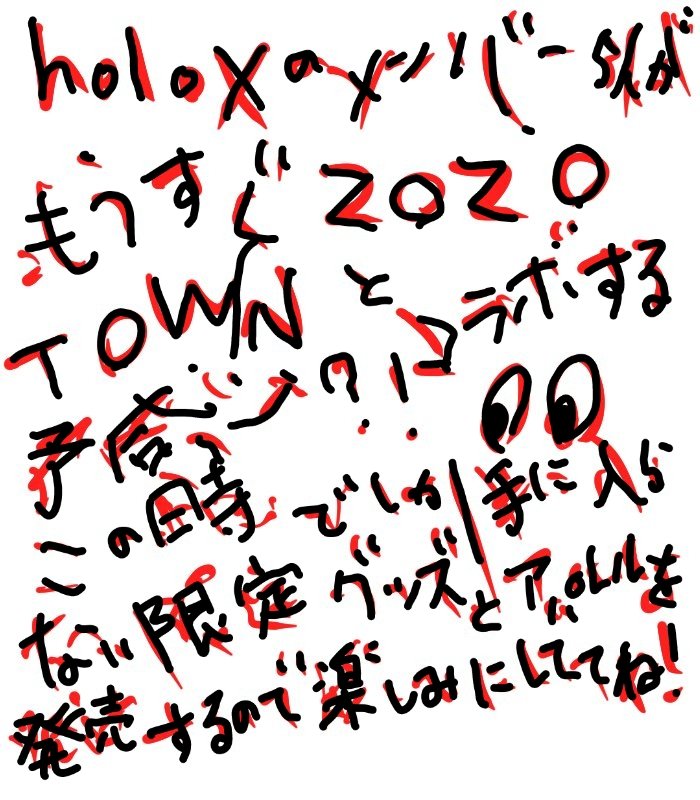 holoXのメンバーらんが
もうすぐZOZO
TOWNとコラボする
予感ベジ?!
この時でしか手に入ら
ない限定グッズとアパレルを
発売するので楽しみにしててね!